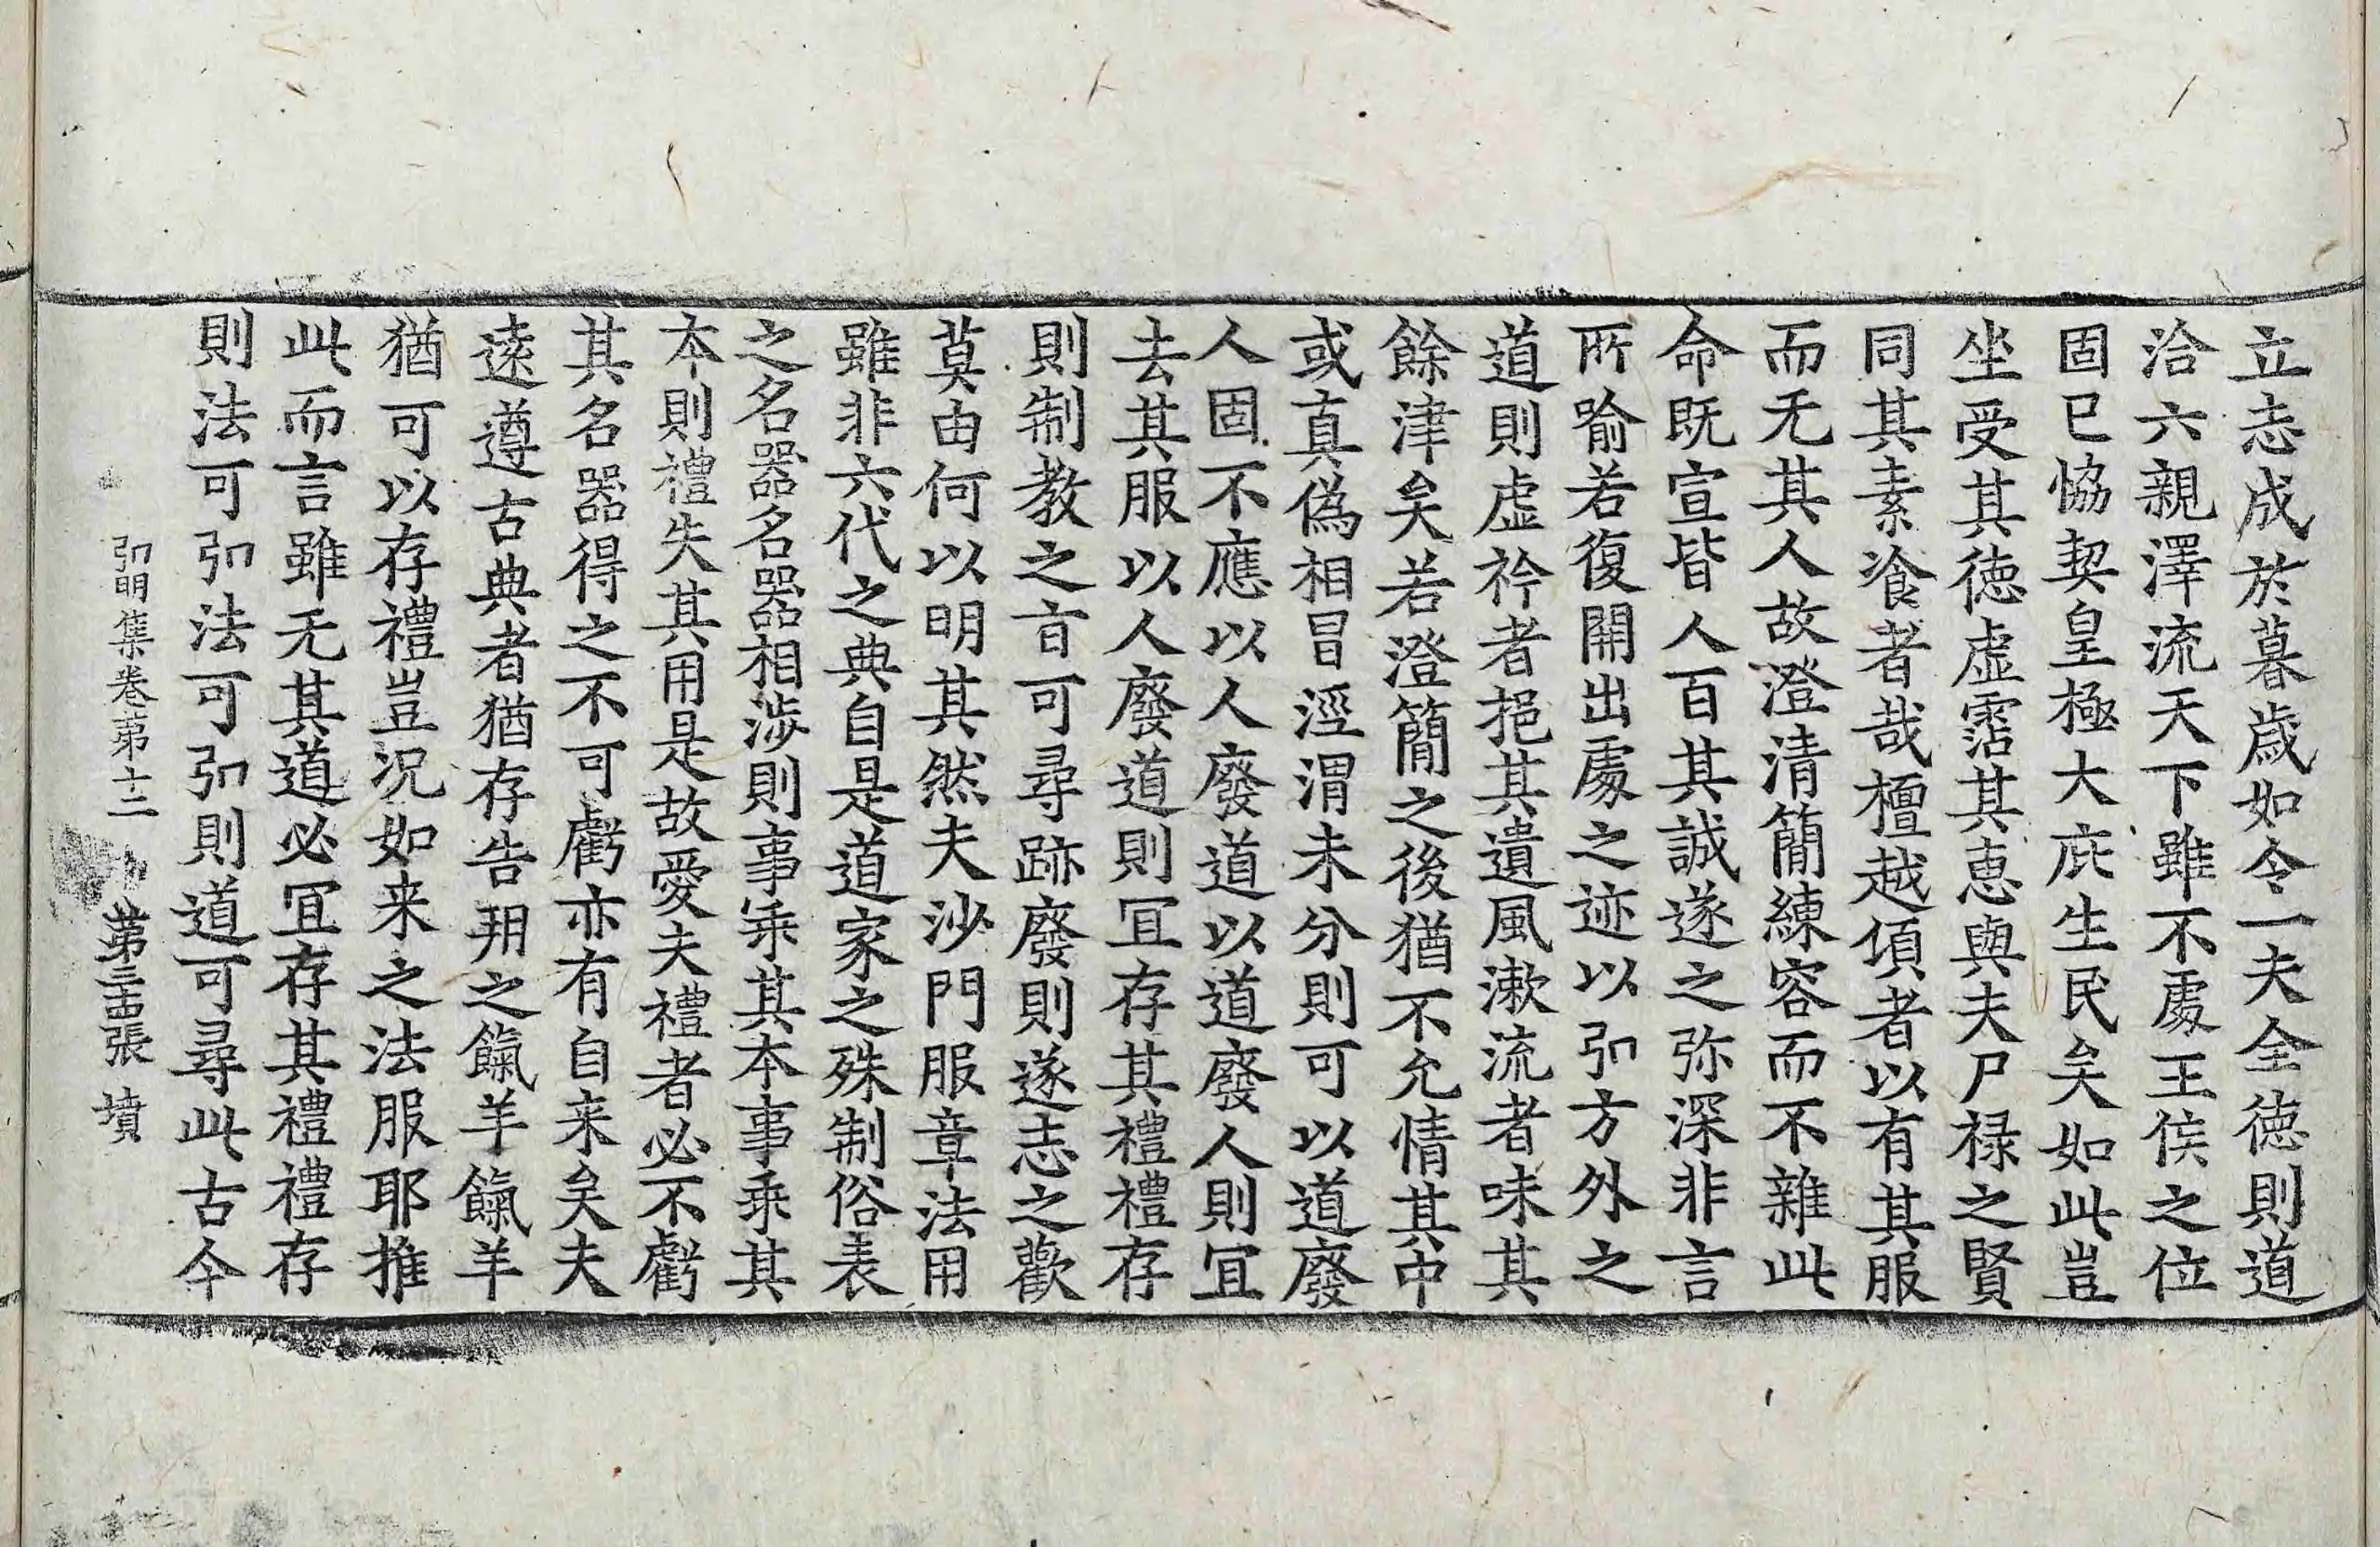 立志成於暮歲如令一夫全徳則道
洽六親澤流天下雖不處王侯之位
固已恊契皇極大庇生民矣如此豈
坐受其徳虛霑其恵與夫尸禄之賢
同其素飡者哉檀越傾者以有其服
而无其人故澄清簡練容而不雜此
命既宣皆人百其誠遂之弥深非言
所喻若復開出處之迹以弘方外之
道則虛衿者挹其遺風漱流者味其
餘津矣若澄簡之後猶不允情其中
或真偽相冒涇渭未分則可以道廢
人固不應以人廢道以道廢人則冝
去其服以人廢道則冝存其禮禮存
則制教之㫖可尋跡廢則遂志之歡
莫由何以明其然夫沙門服章法用
雖非六代之典自是道家之殊制俗表
之名器名器相涉則事乖其本事乖其
本則禮失其用是故愛夫禮者必不虧
其名器得之不可虧亦有自来矣夫
逺遵古典者猶存告朔之餼羊餼羊
猶可以存禮豈況如来之法服耶推
此而言雖无其道必冝存其禮禮存
則法可弘法可弘則道可尋此古今
弘明集卷第十二 第三十四張 墳